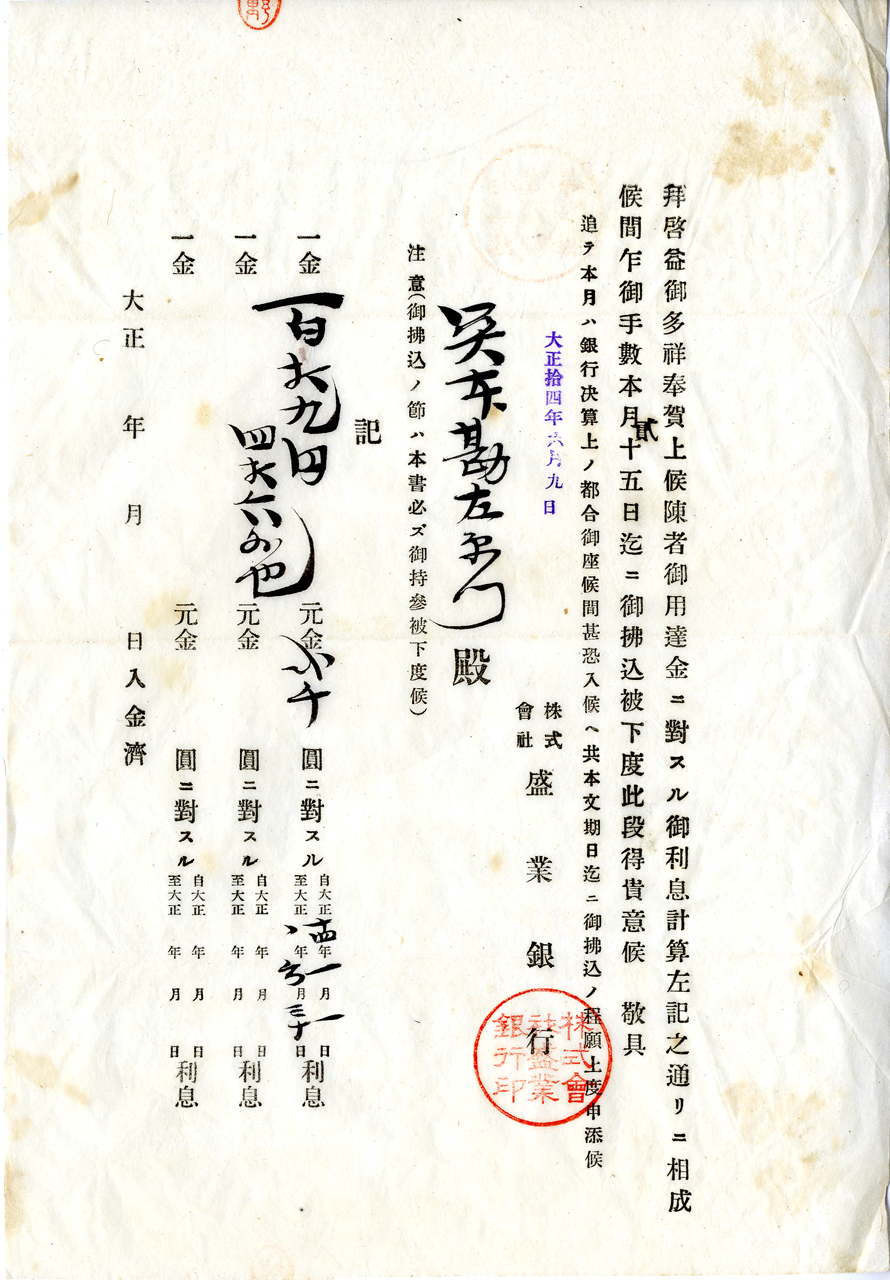 拜啓益御多祥奉賀上候陳者御用達金ニ對スル御利息計算左記之通リニ相成
候間乍御手數本月貳十五日迄ニ御拂込被下度此段得貴意候 敬具
追テ本月ハ銀行決算上ノ都合御座候間甚恐入候ヘ共本文期日迄ニ御拂込ノ程願上度申添候
大正拾四年六月九日
株式會社 盛業銀行
株式會
社盛業
銀行印
勘左衛门殿
注意(御拂込ノ節ハ本書必ズ御持參被下度候)
記
一金 百六十九円 四十六戋也 元金 千圓ニ對スル 自大正十四年一月 日 至大正 年六月三十日利息
一金 元金 圓ニ對スル 自大正 年 月 日 至大正 年 月 日利息
一金 元金 圓ニ對スル 自大正 年 月 日 至大正 年 月 日利息
大正 年 月 日入金濟